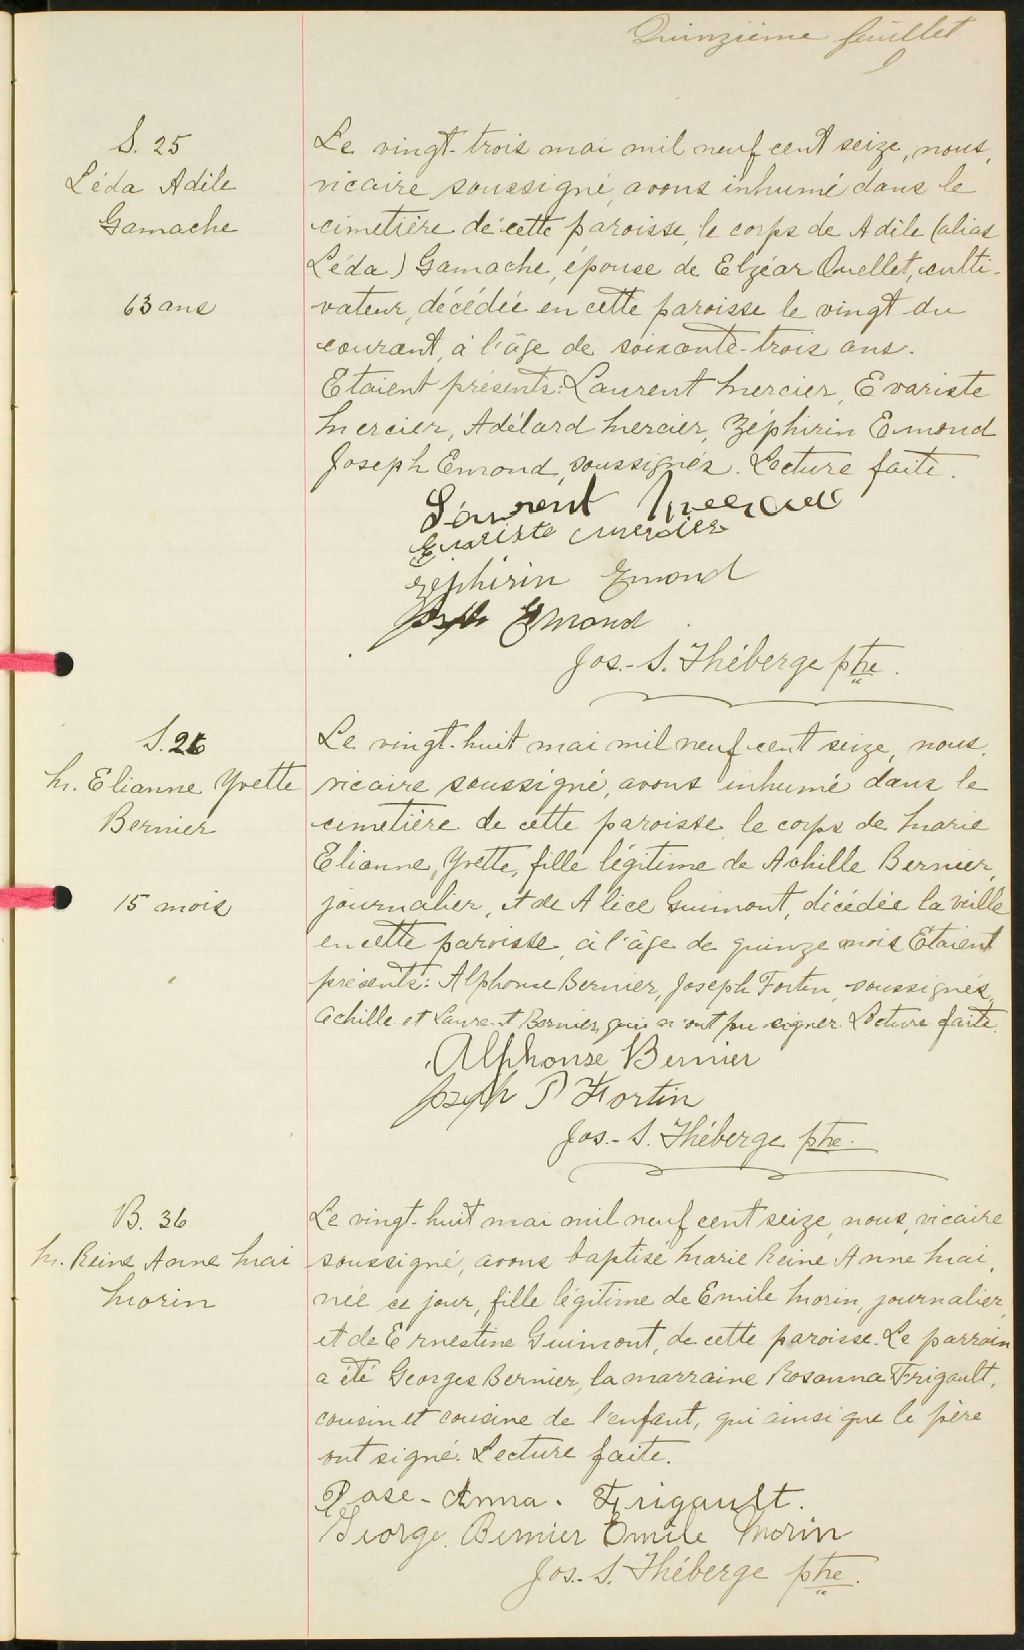 Quinzième feuillet
S. 25
Léda Adèle
Gamache
63 ans
Le vingt-trois mai mil neuf cent seize, nous,
vicaire soussigné, avons inhumé dans le
cimetière de cette paroisse, le corps de Adèle (alias
Léda) Gamache, épouse de Elzéar Ouellet, culti-
vateur, décédée en cette paroisse le vingt du
courant, à l'âge de soixante-trois ans.
Etaient présents: Laurent Mercier, Evariste
Mercier, Adélard Mercier, Zéphirin Emond
Joseph Emond, soussignés. Lecture faite.
Laurent Mercier
Evariste Mercier
Zephirin Emond
Joseph Emond
Jos.-S. Théberge ptre.
S. 26
M. Elianne Yvette
Bernier
15 mois
Le vingt-huit mai mil neuf cent seize, nous,
vicaire soussigné, avons inhumé dans le
cimetière de cette paroisse, le corps de Marie
Elianne, Yvette, fille légitime de Achille Bernier,
journalier, et de Alice Guimont, décédée la veille
en cette paroisse, à l'âge de quinze mois Étaient
présents: Alphonse Bernier, Joseph Fortin, soussignés,
Achille et Laurent Bernier, qui n'ont pu signer. Lecture faite.
Alphonse Bernier
Joseph P Fortin
Jos.-S. Théberge ptre.
B. 36
M. Reine Anne Mai
Morin
Le vingt-huit mai mil neuf cent seize, nous, vicaire
soussigné, avons baptisé Marie Reine Anne Mai,
née ce jour, fille légitime de Emile Morin, journalier,
et de Ernestine Guimont, de cette paroisse. Le parrain
a été Georges Bernier, la marraine Rosanna Frigault,
cousin et cousine de l'enfant, qui ainsi que le père
ont signé. Lecture faite.
Rose-Anna. Frigault.
George. Bernier Emile Morin
Jos.-S. Théberge ptre.